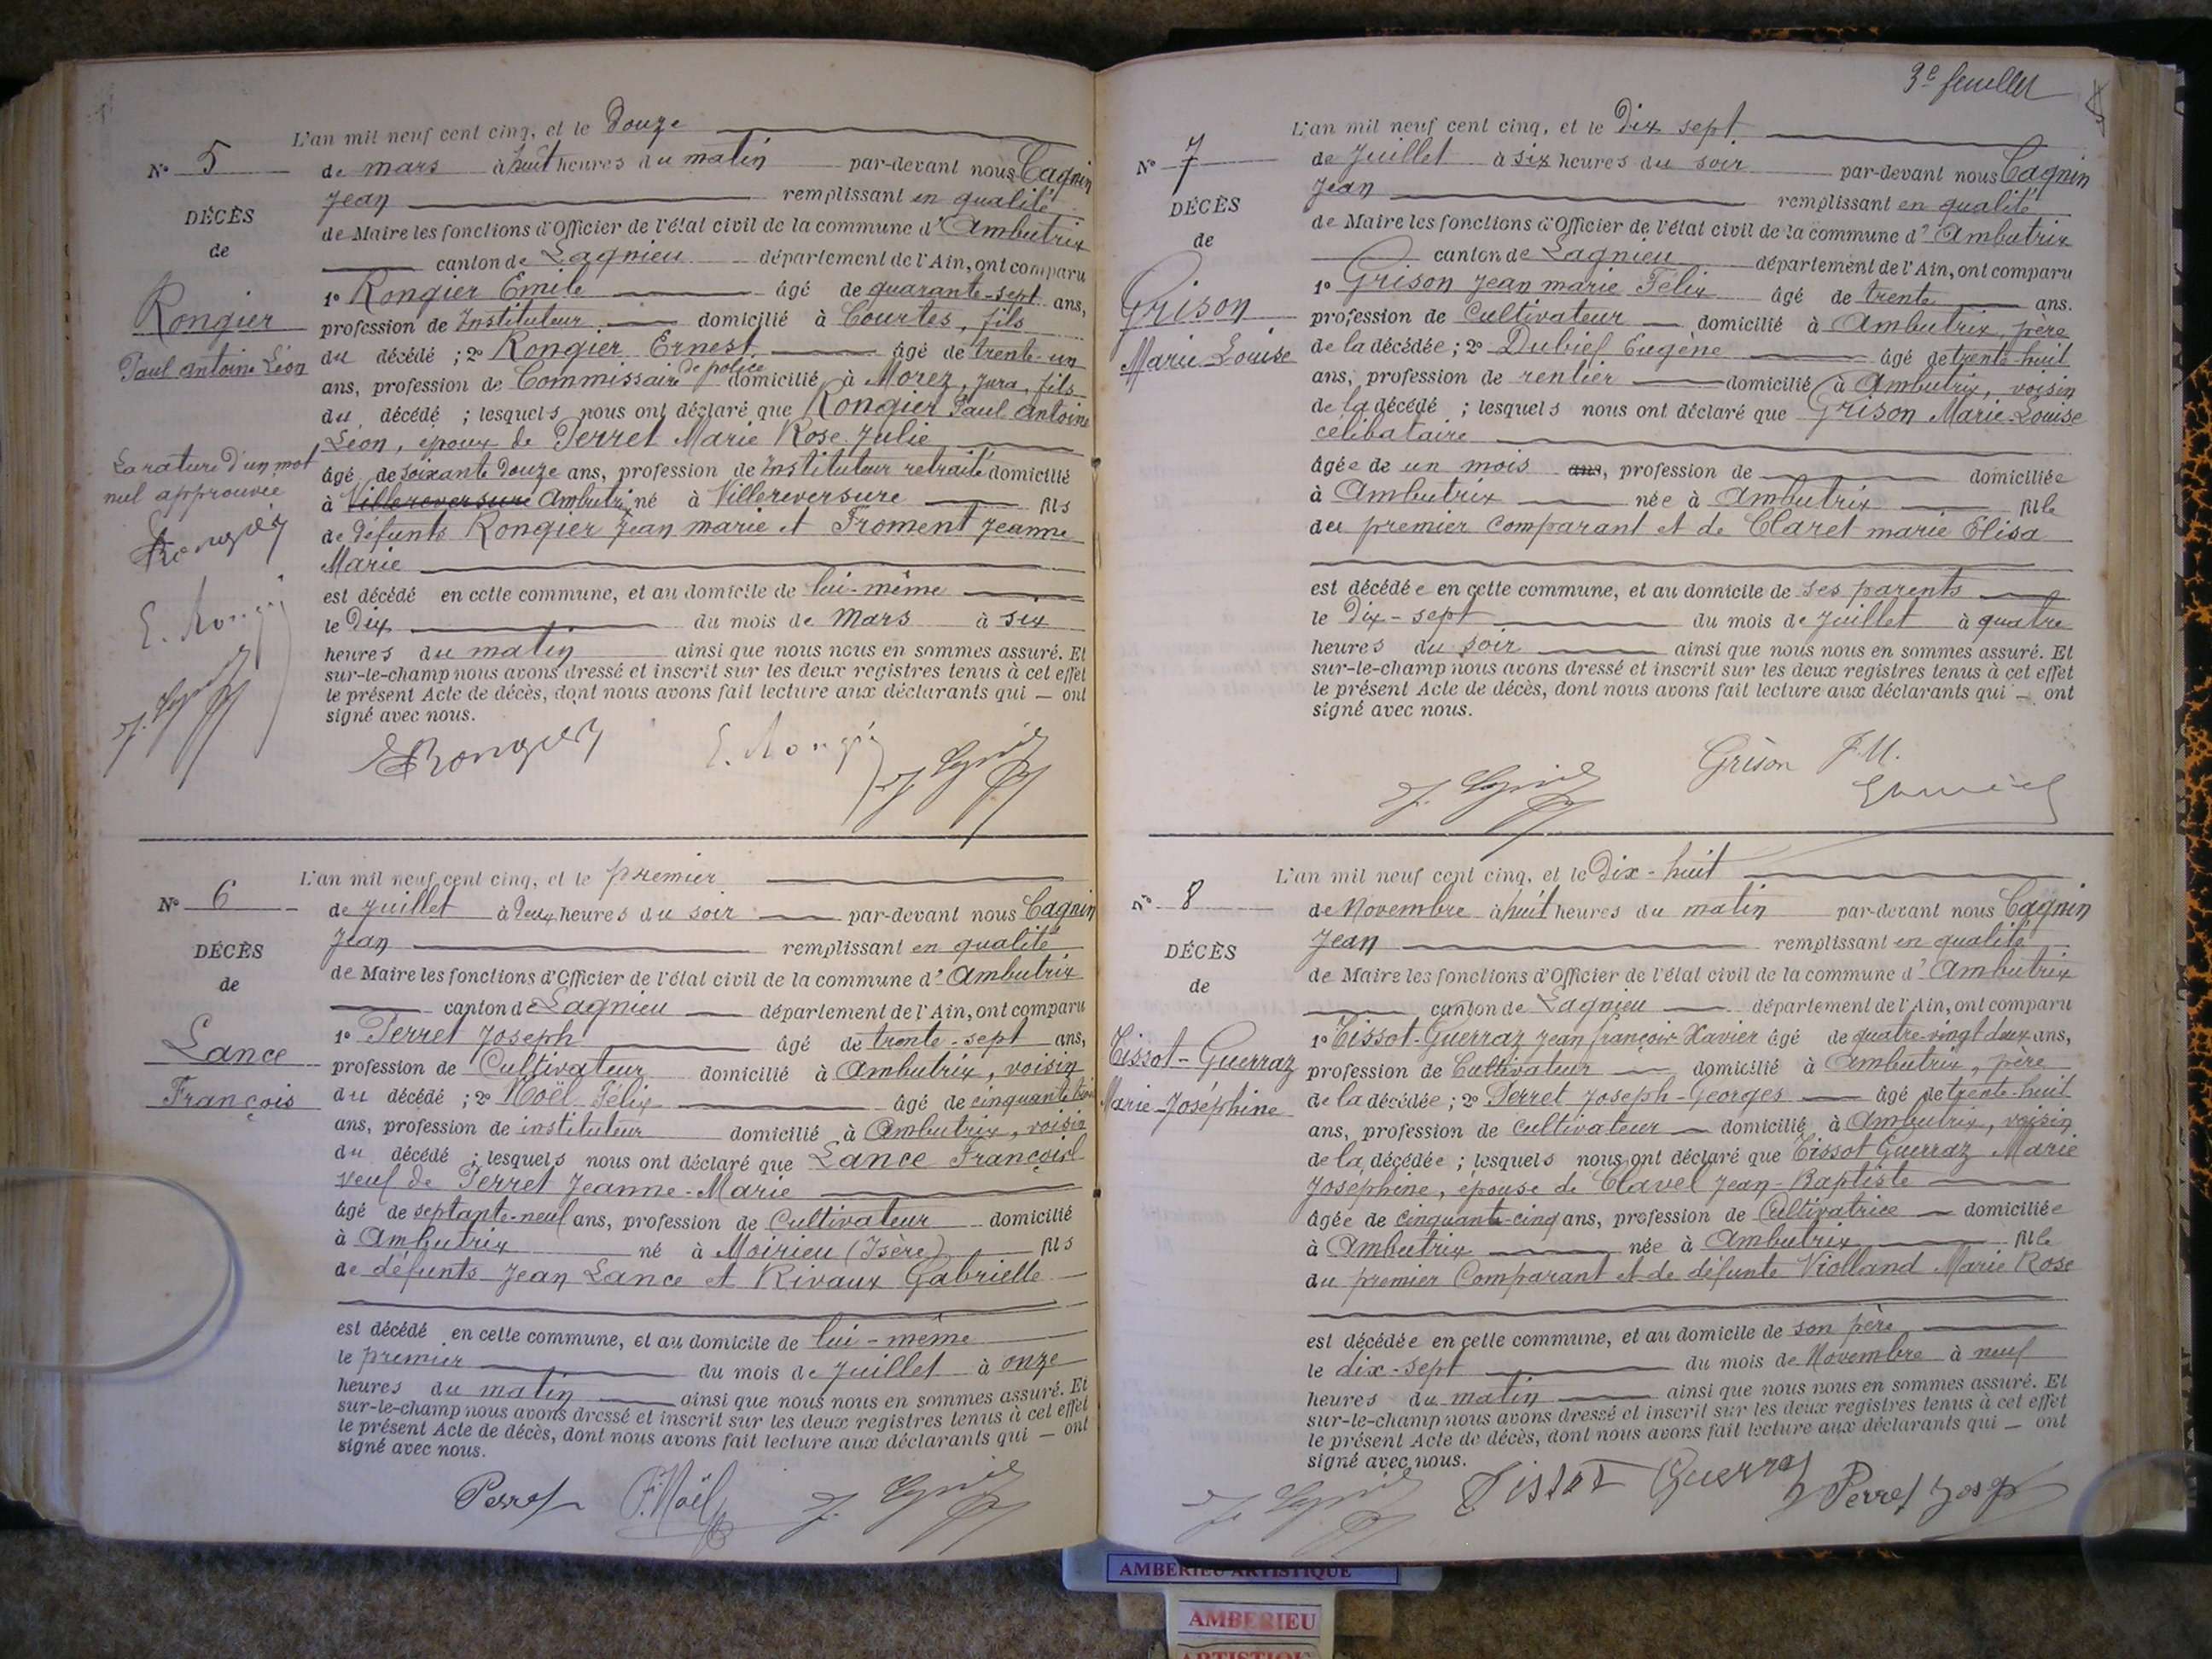 L'an mil neuf cent cinq, et le Douze
N° 5
de mars à huit heures du matin par-devant nous Cagnin
Jean remplissant en qualité
DÉCÈS
de Maire les fonctions d'Officier de l'état civil de la commune d'Ambutrix
de
canton de Lagnieu département de l'Ain, ont comparu
1° Rongier Emile âgé de quarante-sept ans,
Rongier
profession de Instituteur domicilié à Courtes, fils
Paul Antoine Léon
du décédé ; 2° Rongier Ernest âgé de trente-un
ans, profession de Commissaire de police domicilié à Morez, Jura, fils
du décédé ; lesquels nous ont déclaré que Rongier Paul Antoine
Léon, époux de Perret Marie Rose Julie
La rature d'un mot
nul approuvée
âgé de soixante douze ans, profession de Instituteur retraité domicilié
à Villereversure Ambutrix né à Villereversure fils
de défunts Rongier Jean marie et Froment Jeanne
Rongier
Marie
est décédé en cette commune, et au domicile de lui-même
E. Rongier
le Dix du mois de Mars à six
heures du matin ainsi que nous nous en sommes assuré. Et
sur-le-champ nous avons dressé et inscrit sur les deux registres tenus à cet effet
le présent Acte de décès, dont nous avons fait lecture aux déclarants qui — ont
signé avec nous.
J. Cagnin
ERongier E. Rongier J. Cagnin
L'an mil neuf cent cinq, et le premier
N° 6
de Juillet à Deux heures du soir par-devant nous Cagnin
Jean remplissant en qualité
DÉCÈS
de Maire les fonctions d'Officier de l'état civil de la commune d'Ambutrix
de
canton de Lagnieu département de l'Ain, ont comparu
1° Perret Joseph âgé de trente-sept ans,
Lance
profession de Cultivateur domicilié à Ambutrix, voisin
François
du décédé ; 2° Noël Félix âgé de cinquante trois
ans, profession de instituteur domicilié à Ambutrix, voisin
du décédé ; lesquels nous ont déclaré que Lance François
veuf de Perret Jeanne-Marie
âgé de septante-neuf ans, profession de Cultivateur domicilié
à Ambutrix né à Moirieu (Isère) fils
de défunts Jean Lance et Rivaux Gabrielle
est décédé en cette commune, et au domicile de lui-même
le premier du mois de Juillet à onze
heures du matin ainsi que nous nous en sommes assuré. Et
sur-le-champ nous avons dressé et inscrit sur les deux registres tenus à cet effet
le présent Acte de décès, dont nous avons fait lecture aux déclarants qui — ont
signé avec nous.
Perret F. Noël J. Cagnin
3e feuillet
L'an mil neuf cent cinq, et le Dix sept
N° 7
de Juillet à six heures du soir par-devant nous Cagnin
Jean remplissant en qualité
DÉCÈS
de Maire les fonctions d'Officier de l'état civil de la commune d'Ambutrix
de
canton de Lagnieu département de l'Ain, ont comparu
1° Grison Jean marie Félix âgé de trente ans.
Grison
profession de Cultivateur domicilié à Ambutrix, père
Marie Louise
de la décédée ; 2° Dubief Eugène âgé de trente-huit
ans, profession de rentier domicilié à Ambutrix, voisin
de la décédé ; lesquels nous ont déclaré que Grison Marie-Louise
célibataire
âgée de un mois ans, profession de domiciliée
à Ambutrix née à Ambutrix fille
du premier comparant et de Claret marie Elisa
est décédée en cette commune, et au domicile de ses parents
le Dix-sept du mois de Juillet à quatre
heures du soir ainsi que nous nous en sommes assuré. Et
sur-le-champ nous avons dressé et inscrit sur les deux registres tenus à cet effet
le présent Acte de décès, dont nous avons fait lecture aux déclarants qui — ont
signé avec nous.
J. Cagnin Grison J.M.
L'an mil neuf cent cinq, et le Dix-huit
N° 8
de Novembre à huit heures du matin par-devant nous Cagnin
Jean remplissant en qualité
DÉCÈS
de Maire les fonctions d'Officier de l'état civil de la commune d'Ambutrix
de
canton de Lagnieu département de l'Ain, ont comparu
1° Tissot-Guerraz Jean françois Xavier âgé de quatre-vingt deux ans,
Tissot-Guerraz
profession de Cultivateur domicilié à Ambutrix, père
Marie-Joséphine
de la décédée ; 2° Perret Joseph-Georges âgé de trente-huit
ans, profession de cultivateur domicilié à Ambutrix, voisin
de la décédée ; lesquels nous ont déclaré que Tissot Guerraz Marie
Joséphine, épouse de Clavel Jean-Baptiste
âgée de cinquante-cinq ans, profession de Cultivatrice domiciliée
à Ambutrix née à Ambutrix fille
du premier Comparant et de défunte Violland Marie Rose
est décédée en cette commune, et au domicile de son père
le dix-sept du mois de Novembre à neuf
heures du matin ainsi que nous nous en sommes assuré. Et
sur-le-champ nous avons dressé et inscrit sur les deux registres tenus à cet effet
le présent Acte de décès, dont nous avons fait lecture aux déclarants qui — ont
signé avec nous.
J. Cagnin Tissot Guerraz Perret Josep
AMBERIEU ARTISTIQUE
AMBERIEU
ARTISTIQUE